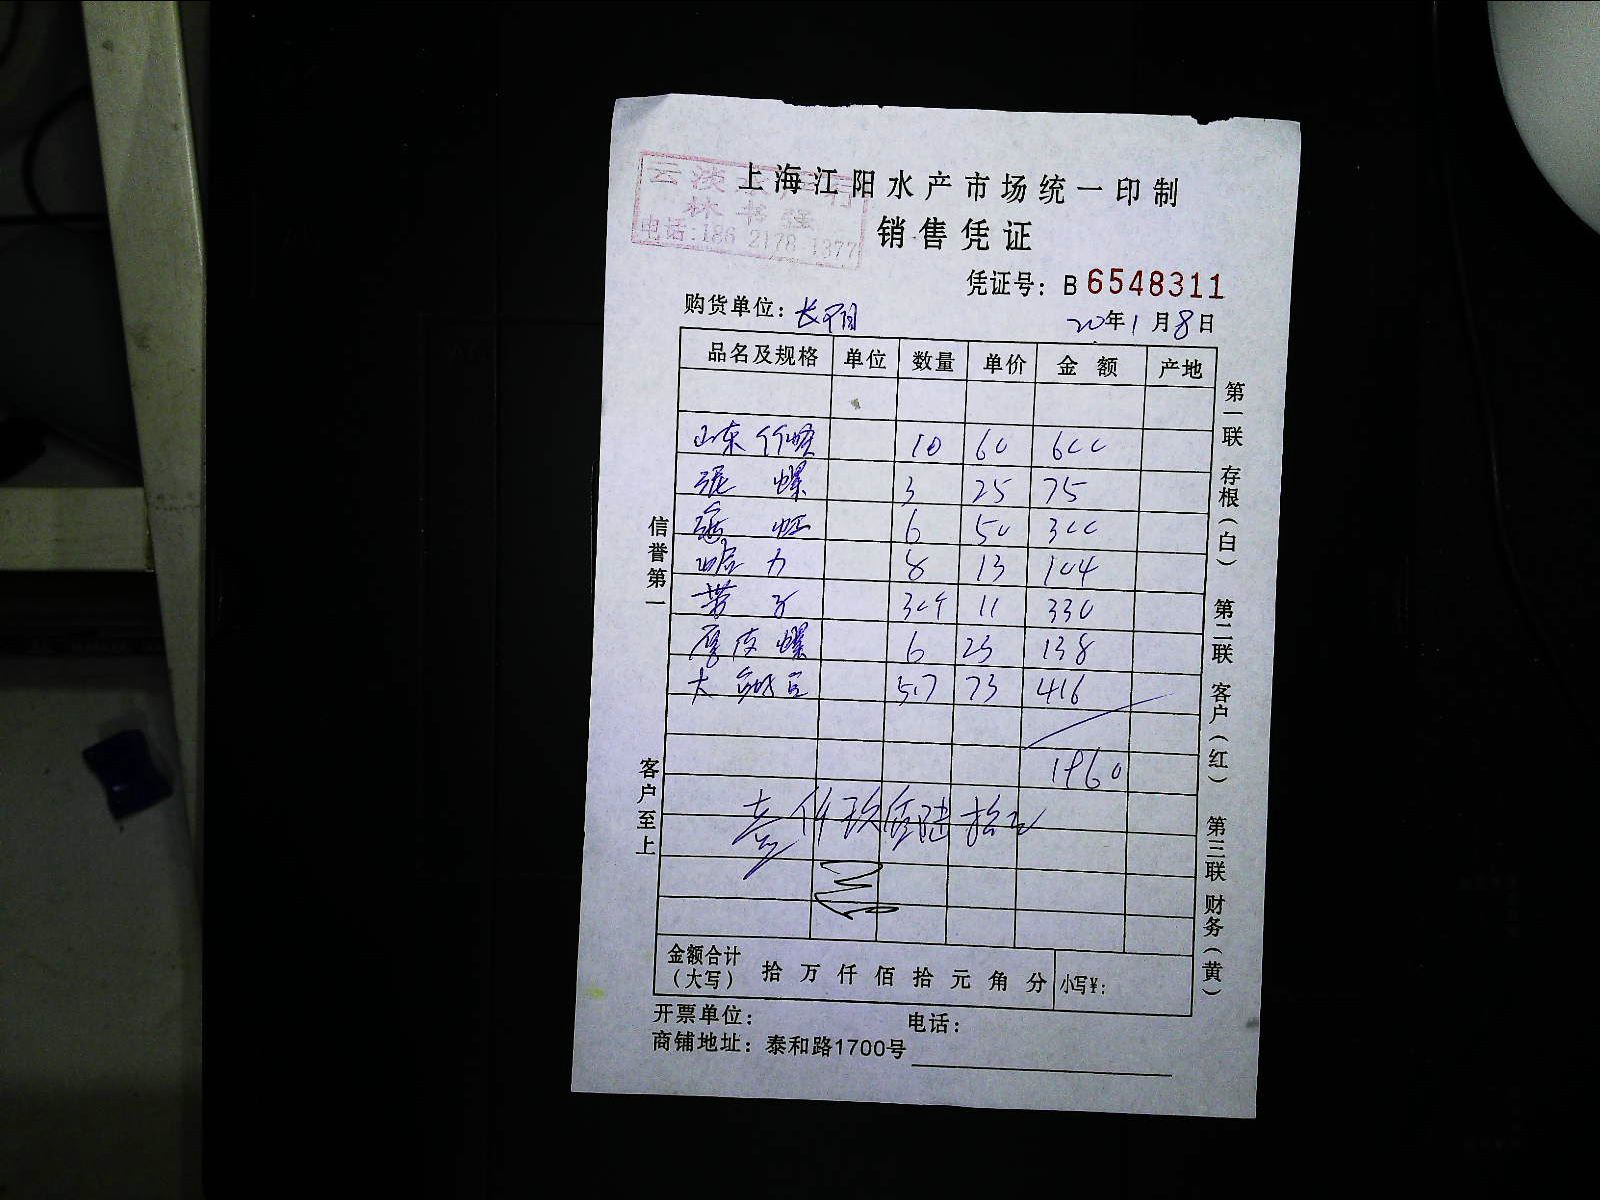 上海江阳水产市场统一印制
云淡
林书强
电话:186 2178 1377
销售凭证
凭证号: B 6548311
购货单位: 长阳
20年1月8日
品名及规格 单位 数量 单价 金额 产地
山东 10 60 600
泥螺 3 25 75
海虹 6 50 300
蛤力 8 13 104
带子 30个 11 330
厚皮螺 6 23 138
大 5.7 73 416
1960
壹仟玖佰陆拾元
金额合计(大写) 拾 万 仟 佰 拾 元 角 分 小写¥:
开票单位: 电话:
商铺地址: 泰和路1700号
信誉第一
客户至上
第一联 存根(白) 第二联 客户(红) 第三联 财务(黄)